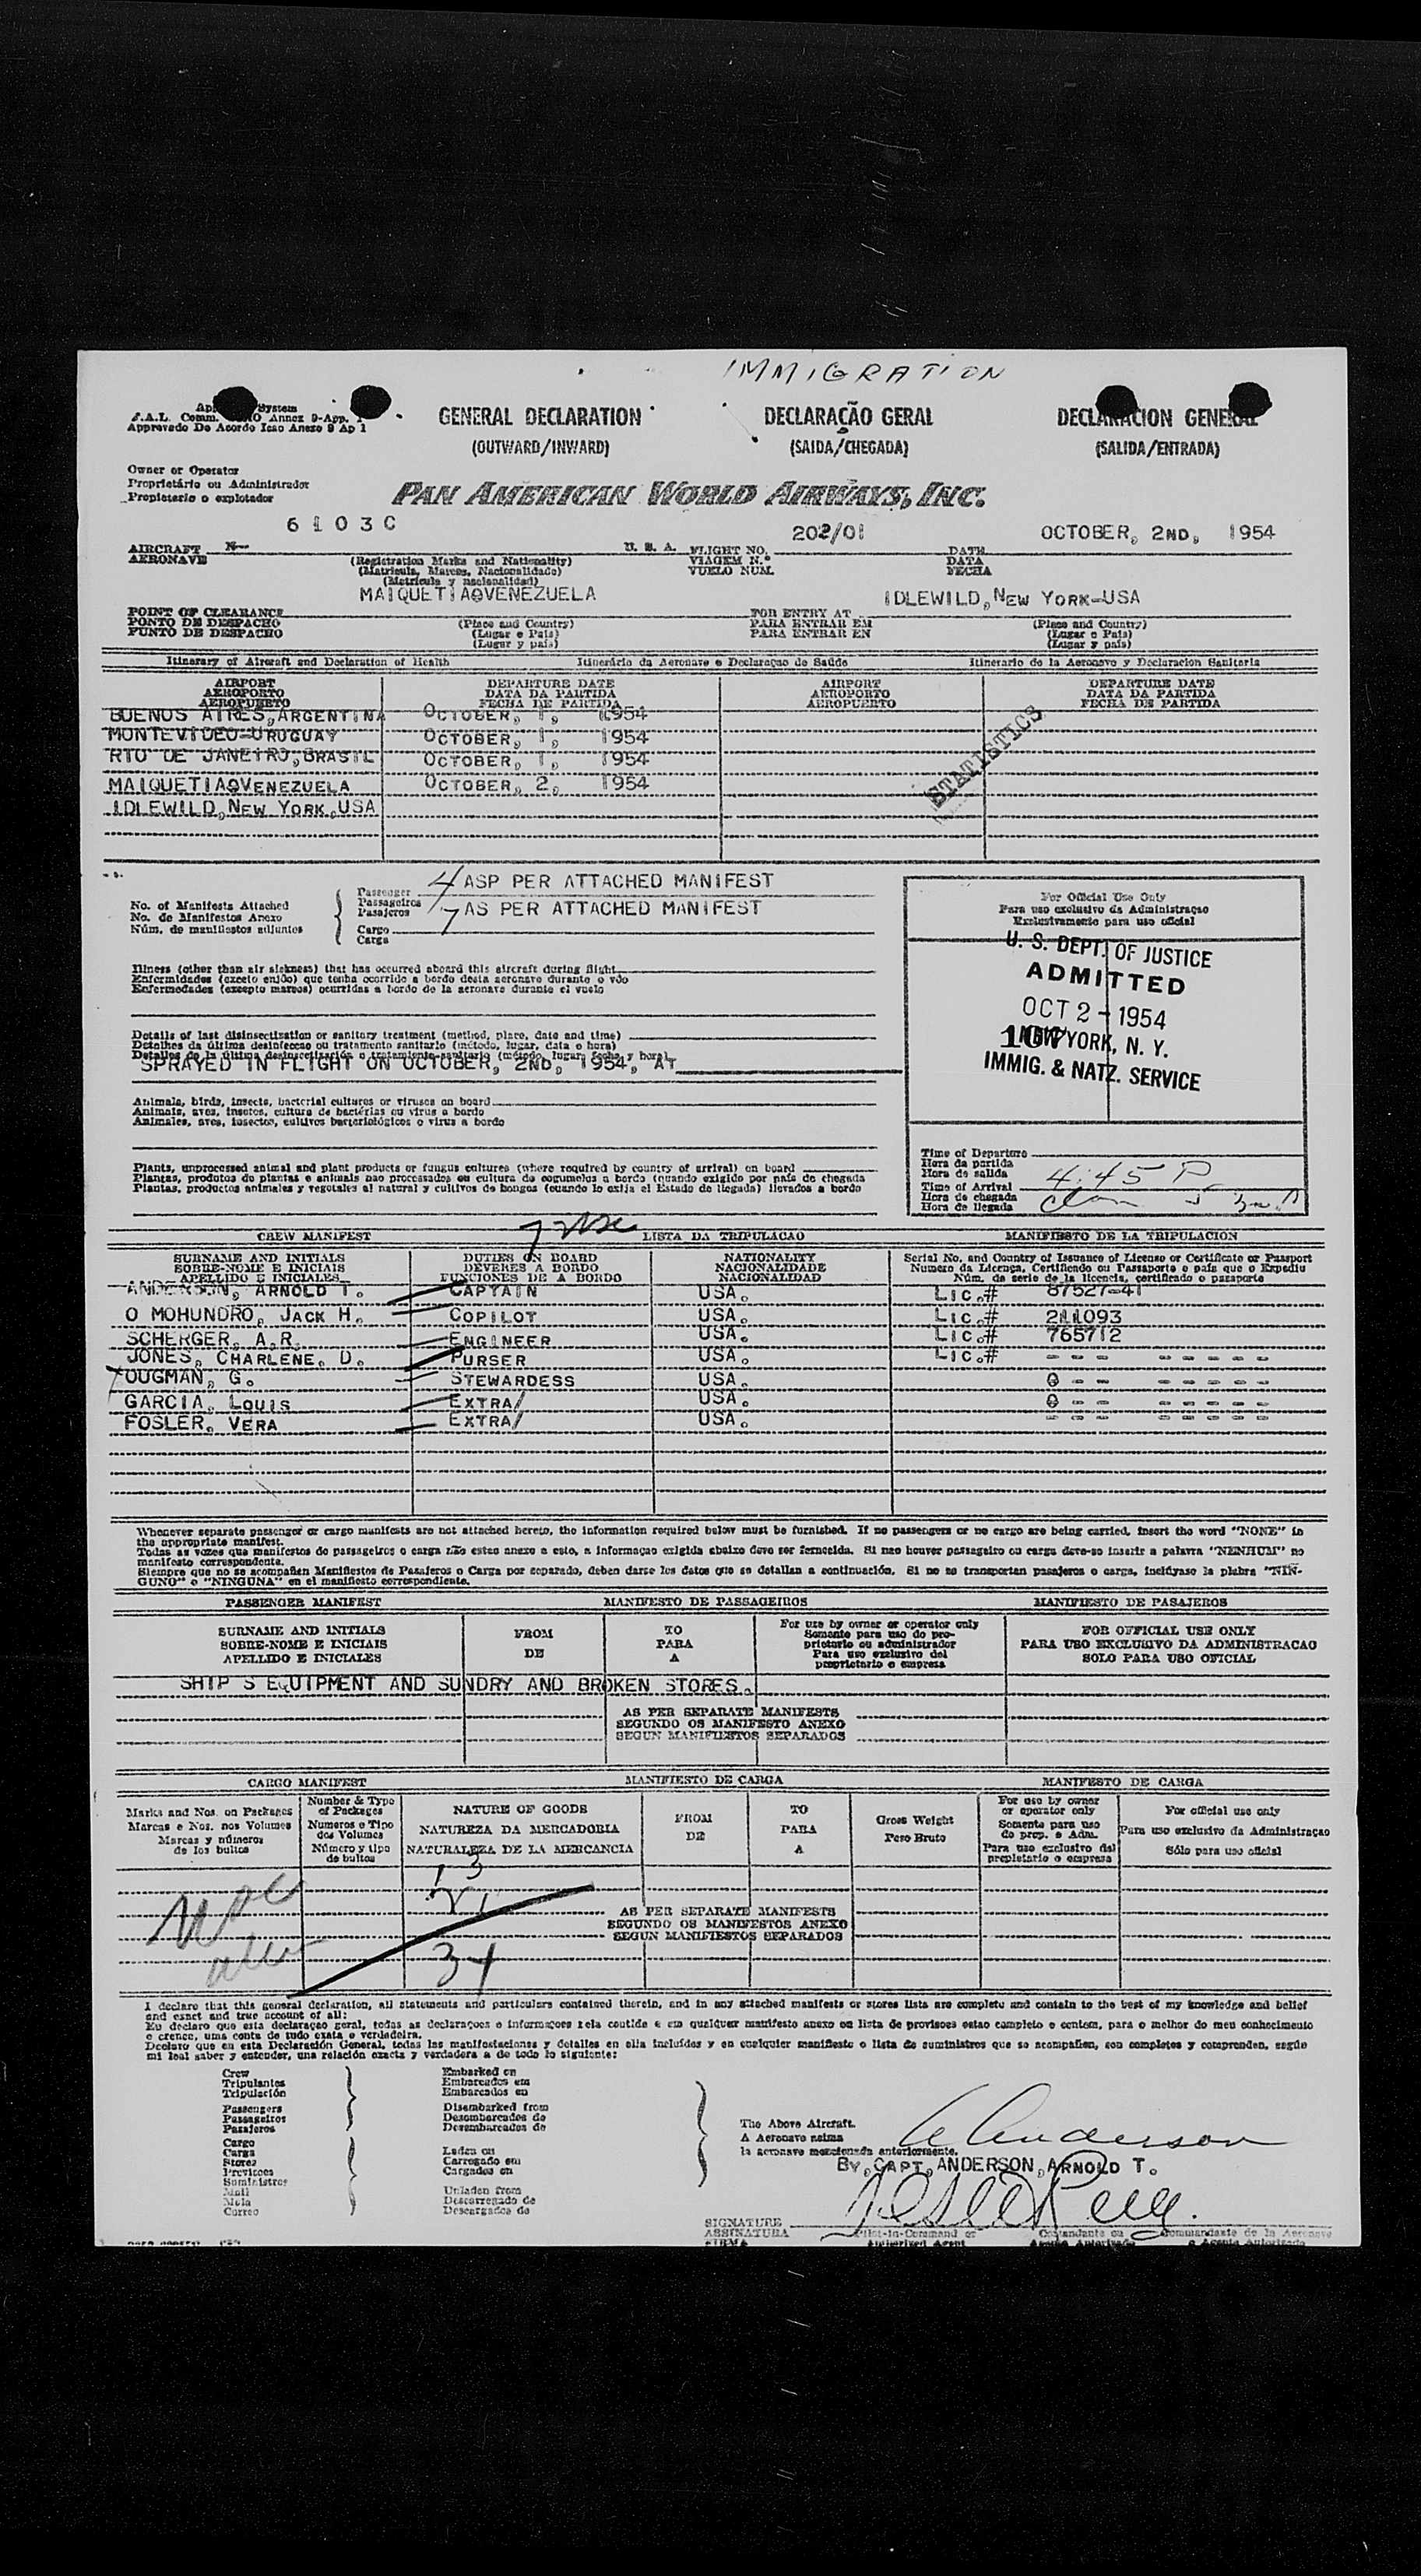 IMMIGRATION
Approvado De Acordo Icao Anexo 9 Ap 1
GENERAL DECLARATION
(OUTWARD/INWARD)
DECLARAÇÃO GERAL
(SAIDA/CHEGADA)
DECLARACION GENERAL
(SALIDA/ENTRADA)
Owner or Operator
Proprietário ou Administrador
Propietario o explotador
PAN AMERICAN WORLD AIRWAYS, INC.
6103C 202/01 OCTOBER, 2ND, 1954
AIRCRAFT N— U. S. A. FLIGHT NO. DATE
AERONAVE (Registration Marks and Nationality) VIAGEM N.º DATA
(Matricula, Marcas, Nacionalidade) VUELO NUM. FECHA
(Matricula y nacionalidad)
MAIQUETIA@VENEZUELA IDLEWILD,NEW YORK-USA
POINT OF CLEARANCE FOR ENTRY AT
PONTO DE DESPACHO (Place and Country) PARA ENTRAR EM (Place and Country)
PUNTO DE DESPACHO (Lugar e Pais) PARA ENTRAR EN (Lugar e Pais)
(Lugar y pais) (Lugar y pais)
Itinerary of Aircraft and Declaration of Health Itinerário da Aeronave e Declaraçao de Saúde Itinerario de la Aeronave y Declaracion Sanitaria
AIRPORT DEPARTURE DATE AIRPORT DEPARTURE DATE
AEROPORTO DATA DA PARTIDA AEROPORTO DATA DA PARTIDA
AEROPUERTO FECHA DE PARTIDA AEROPUERTO FECHA DE PARTIDA
BUENOS AIRES,ARGENTINA OCTOBER, 1, 1954
MONTEVIDEO-URUGUAY OCTOBER, 1, 1954
RIO DE JANEIRO,BRASIL OCTOBER, 1, 1954
MAIQUETIA@VENEZUELA OCTOBER, 2, 1954
IDLEWILD,NEW YORK,USA
STATISTICS
No. of Manifests Attached
No. de Manifestos Anexo
Núm. de manifiestos adjuntos
Passenger 4 ASP PER ATTACHED MANIFEST
Passageiros
Pasajeros 7 AS PER ATTACHED MANIFEST
Cargo
Carga
For Official Use Only
Para uso exclusivo da Administraçao
Exclusivamente para uso oficial
U. S. DEPT. OF JUSTICE
ADMITTED
OCT 2 - 1954
NEW YORK, N. Y.
IMMIG. & NATZ. SERVICE
Illness (other than air sickness) that has occurred aboard this aircraft during flight
Enfermidades (exceto enjôo) que tenha ocorrido a bordo desta aeronave durante o vôo
Enfermedades (excepto mareos) ocurridas a bordo de la aeronave durante el vuelo
Details of last disinsectization or sanitary treatment (method, place, date and time)
Detalhes da última desinfeccao ou tratamento sanitario (método, lugar, data e hora)
Detalles de la última desinsectización o tratamiento sanitario (método, lugar, fecha y hora)
SPRAYED IN FLIGHT ON OCTOBER, 2ND, 1954, AT
Animals, birds, insects, bacterial cultures or viruses on board
Animais, aves, insetos, cultura de bactérias ou virus a bordo
Animales, aves, insectos, cultivos bacteriológicos o virus a bordo
Plants, unprocessed animal and plant products or fungus cultures (where required by country of arrival) on board
Plantas, produtos de plantas e animais nao processados ou cultura de cogumelos a bordo (quando exigido por pais de chegada
Plantas, productos animales y vegetales al natural y cultivos de hongos (cuando lo exija el Estado de llegada) llevados a bordo
Time of Departure
Hora da partida
Hora de salida 4:45 P
Time of Arrival
Hora de chegada
Hora de llegada
CREW MANIFEST LISTA DA TRIPULACAO MANIFIESTO DE LA TRIPULACION
SURNAME AND INITIALS DUTIES ON BOARD NATIONALITY Serial No. and Country of Issuance of License or Certificate or Passport
SOBRE-NOME E INICIAIS DEVERES A BORDO NACIONALIDADE Numero da Licença, Certificado ou Passaporte e país que o Expediu
APELLIDO E INICIALES FUNCIONES DE A BORDO NACIONALIDAD Núm. de serie de la licencia, certificado o pasaporte
ANDERSON, ARNOLD T. CAPTAIN USA. LIC.# 87527-41
O MOHUNDRO, JACK H. COPILOT USA. LIC.# 211093
SCHERGER, A.R. ENGINEER USA. LIC.# 765712
JONES, CHARLENE, D. PURSER USA. LIC.# - - - - - - - -
YOUGMAN, G. STEWARDESS USA. - - - - - - -
GARCIA, LOUIS EXTRA/ USA. - - - - - - -
FOSLER, VERA EXTRA/ USA. - - - - - - - -
Whenever separate passenger or cargo manifests are not attached hereto, the information required below must be furnished. If no passengers or no cargo are being carried, insert the word "NONE" in
the appropriate manifest.
Todas as vezes que manifestos de passageiros o carga não estao anexo a esto, a informaçao exigida abaixo deve ser fornecida. Si nao houver passageiro ou carga deve-se inserir a palavra "NENHUM" no
manifesto correspondente.
Siempre que no se acompañen Manifiestos de Pasajeros o Carga por separado, deben darse los datos que se detallan a continuación. Si no se transportan pasajeros o carga, inclúyase la plabra "NIN-
GUNO" o "NINGUNA" en el manifiesto correspondiente.
PASSENGER MANIFEST MANIFESTO DE PASSAGEIROS MANIFIESTO DE PASAJEROS
SURNAME AND INITIALS FROM TO For use by owner or operator only FOR OFFICIAL USE ONLY
SOBRE-NOME E INICIAIS DE PARA Somente para uso do pro- PARA USO EXCLUSIVO DA ADMINISTRACAO
APELLIDO E INICIALES A prietario ou administrador SOLO PARA USO OFICIAL
Para uso exclusivo del
proprietario o empresa
SHIP S EQUIPMENT AND SUNDRY AND BROKEN STORES.
AS PER SEPARATE MANIFESTS
SEGUNDO OS MANIFESTO ANEXO
SEGUN MANIFIESTOS SEPARADOS
CARGO MANIFEST MANIFIESTO DE CARGA MANIFESTO DE CARGA
Marks and Nos. on Packages Number & Type of Packages NATURE OF GOODS FROM TO Gross Weight For use by owner or operator only For official use only
Marcas e Nos. nos Volumes Numeros e Tipo dos Volumes NATUREZA DA MERCADORIA DE PARA Peso Bruto Somente para uso do prop. e Adm. Para uso exclusivo da Administraçao
Marcas y números de los bultos Número y tipo de bultos NATURALEZA DE LA MERCANCIA A Para uso exclusivo del propietario o empresa Sólo para uso oficial
13
21
34
AS PER SEPARATE MANIFESTS
SEGUNDO OS MANIFESTOS ANEXO
SEGUN MANIFIESTOS SEPARADOS
I declare that this general declaration, all statements and particulars contained therein, and in any attached manifests or stores lists are complete and contain to the best of my knowledge and belief
and exact and true account of all:
Eu declaro que esta declaraçao geral, todas as declaraçoes e informaçoes nela contida e em qualquer manifesto anexo ou lista de provisoes estao completo e contem, para o melhor do meu conhecimento
e crence, uma conta de tudo exata e verdadeira.
Declaro que en esta Declaración General, todas las manifestaciones y detalles en ella incluídos y en cualquier manifiesto o lista de suministros que se acompañen, son completos y comprenden, según
mi leal saber y entender, una relación exacta y verdadera a de todo lo siguiente:
Crew Embarked on
Tripulantes Embarcades em
Tripulación Embarcados en
Passengers Disembarked from
Passageiros Desembarcades de
Pasajeros Desembarcados de
Cargo
Carga Laden on
Stores Carregado em
Provisoes Cargados en
Suministros
Mail Unladen from
Mala Descarregado de
Correo Descargados de
The Above Aircraft.
A Aeronave acima
la aeronave mencionada anteriormente.
A Anderson
BY, CAPT, ANDERSON, ARNOLD T.
SIGNATURE
ASSINATURA Pilot-in-Command or Comandante ou Commandante de la Aeronave
FIRMA Authorized Agent